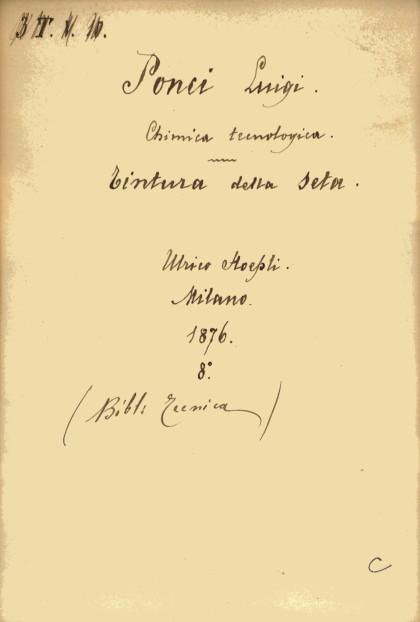 Ponci Luigi.
Chimica tecnologica.
Tintura della Seta.
Ulrico Hoepli.
Milano.
1876.
8º.
(Bibl: Tecnica)
C